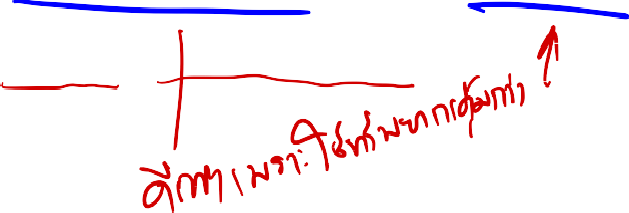 ดีกว่า เพราะใช้ทรัพยากรคุ้มกว่า